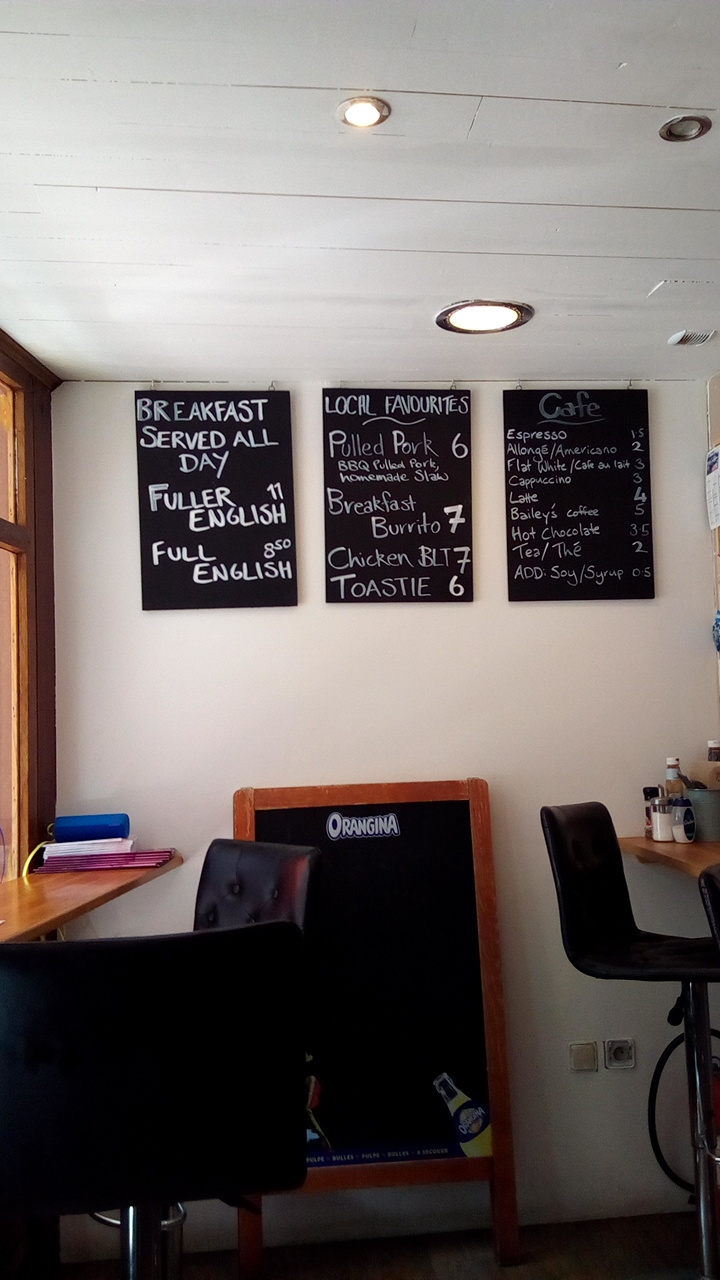 BREAKFAST
SERVED ALL
DAY
FULLER 11
ENGLISH
FULL 850
ENGLISH
LOCAL FAVOURITES
Pulled Pork 6
BBQ Pulled Pork,
homemade Slaw
Breakfast
Burrito 7
Chicken BLT 7
TOASTIE 6
Cafe
Espresso 1.5
Allongé/Americano 2
Flat White/Cafe au lait 3
Cappuccino 3
Latte 4
Bailey's coffee 5
Hot Chocolate 3.5
Tea/Thé 2
ADD: Soy/Syrup 0.5
ORANGINA
ORANGINA
PULPE - BULLES - PULPE - BULLES - A SECOUER